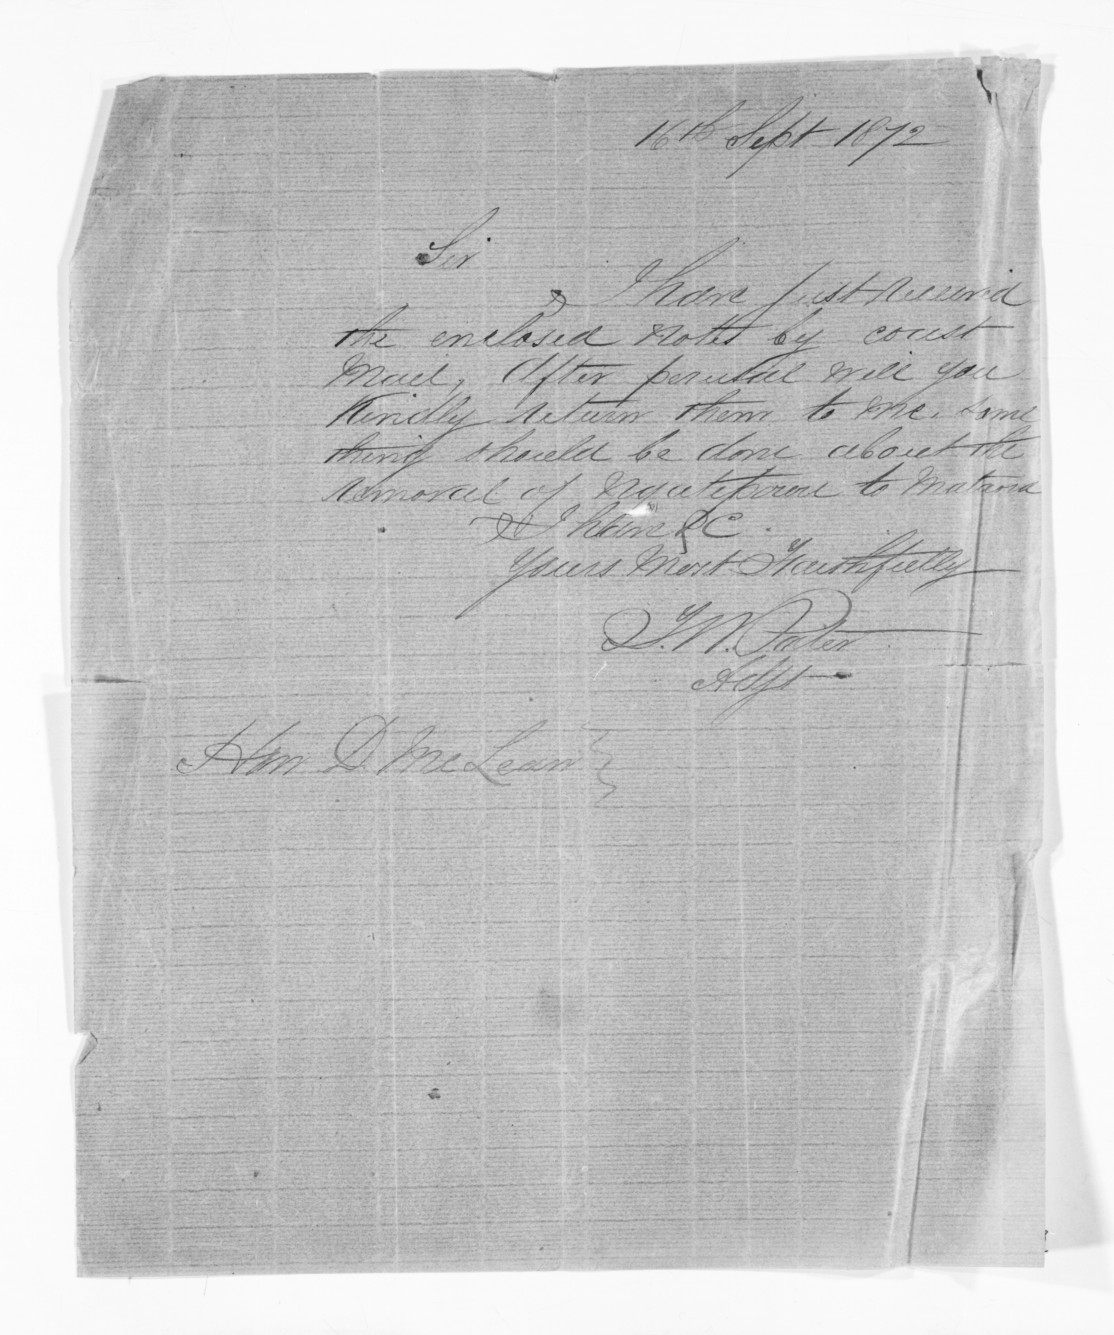 16th Sept 1872
Sir
I have just received
the enclosed notes by coast
Mail, After perusal will you
kindly return them to me. some
thing should be done about the
removal of to Matawa
I have &C.
Yours Most Faithfully
T. W. Porter
Adjt
Hon D. McLean